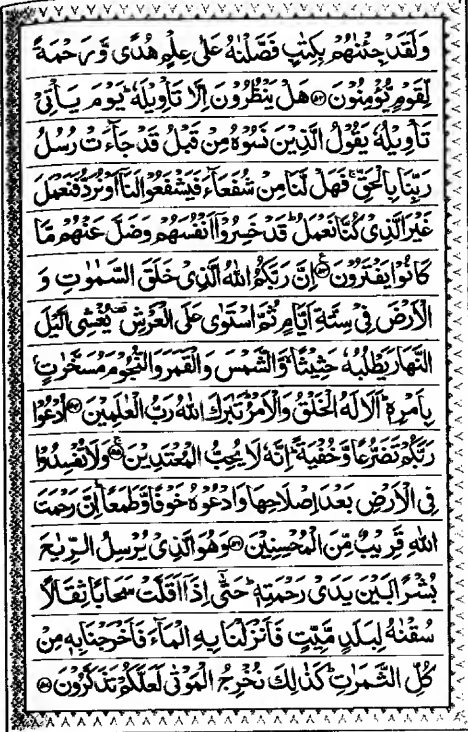 وَلَقَدۡ جِئۡنٰهُمۡ بِكِتٰبٍ فَصَّلۡنٰهُ عَلٰى عِلۡمٍ هُدًى وَّرَحۡمَةً
لِّقَوۡمٍ يُّؤۡمِنُوۡنَ ﴿۵۲﴾ هَلۡ يَنۡظُرُوۡنَ اِلَّا تَاۡوِيۡلَهٗ ؕ يَوۡمَ يَاۡتِىۡ
تَاۡوِيۡلُهٗ يَقُوۡلُ الَّذِيۡنَ نَسُوۡهُ مِنۡ قَبۡلُ قَدۡ جَآءَتۡ رُسُلُ
رَبِّنَا بِالۡحَقِّ ۚ فَهَلْ لَّنَا مِنۡ شُفَعَآءَ فَيَشۡفَعُوۡا لَنَاۤ اَوۡ نُرَدُّ فَنَعۡمَلَ
غَيۡرَ الَّذِىۡ كُنَّا نَعۡمَلُ ؕ قَدۡ خَسِرُوۡۤا اَنۡفُسَهُمۡ وَضَلَّ عَنۡهُمۡ مَّا
كَانُوۡا يَفۡتَرُوۡنَ ﴿۵۳﴾ اِنَّ رَبَّكُمُ اللّٰهُ الَّذِىۡ خَلَقَ السَّمٰوٰتِ وَ
الۡاَرۡضَ فِىۡ سِتَّةِ اَيَّامٍ ثُمَّ اسۡتَوٰى عَلَى الۡعَرۡشِ يُغۡشِى الَّيۡلَ
النَّهَارَ يَطۡلُبُهٗ حَثِيۡثًا ۙ وَّالشَّمۡسَ وَالۡقَمَرَ وَالنُّجُوۡمَ مُسَخَّرٰتٍۢ
بِاَمۡرِهٖ ؕ اَلَا لَهُ الۡخَلۡقُ وَالۡاَمۡرُ ؕ تَبٰرَكَ اللّٰهُ رَبُّ الۡعٰلَمِيۡنَ ﴿۵۴﴾ اُدۡعُوۡا
رَبَّكُمۡ تَضَرُّعًا وَّخُفۡيَةً ؕ اِنَّهٗ لَا يُحِبُّ الۡمُعۡتَدِيۡنَ ﴿۵۵﴾ وَلَا تُفۡسِدُوۡا
فِى الۡاَرۡضِ بَعۡدَ اِصۡلَاحِهَا وَادۡعُوۡهُ خَوۡفًا وَّطَمَعًا ؕ اِنَّ رَحۡمَتَ
اللّٰهِ قَرِيۡبٌ مِّنَ الۡمُحۡسِنِيۡنَ ﴿۵۶﴾ وَهُوَ الَّذِىۡ يُرۡسِلُ الرِّيٰحَ
بُشۡرًۢا بَيۡنَ يَدَىۡ رَحۡمَتِهٖ ؕ حَتّٰۤى اِذَاۤ اَقَلَّتۡ سَحَابًا ثِقَالًا
سُقۡنٰهُ لِبَلَدٍ مَّيِّتٍ فَاَنۡزَلۡنَا بِهِ الۡمَآءَ فَاَخۡرَجۡنَا بِهٖ مِنۡ
كُلِّ الثَّمَرٰتِ ؕ كَذٰلِكَ نُخۡرِجُ الۡمَوۡتٰى لَعَلَّكُمۡ تَذَكَّرُوۡنَ ﴿۵۷﴾